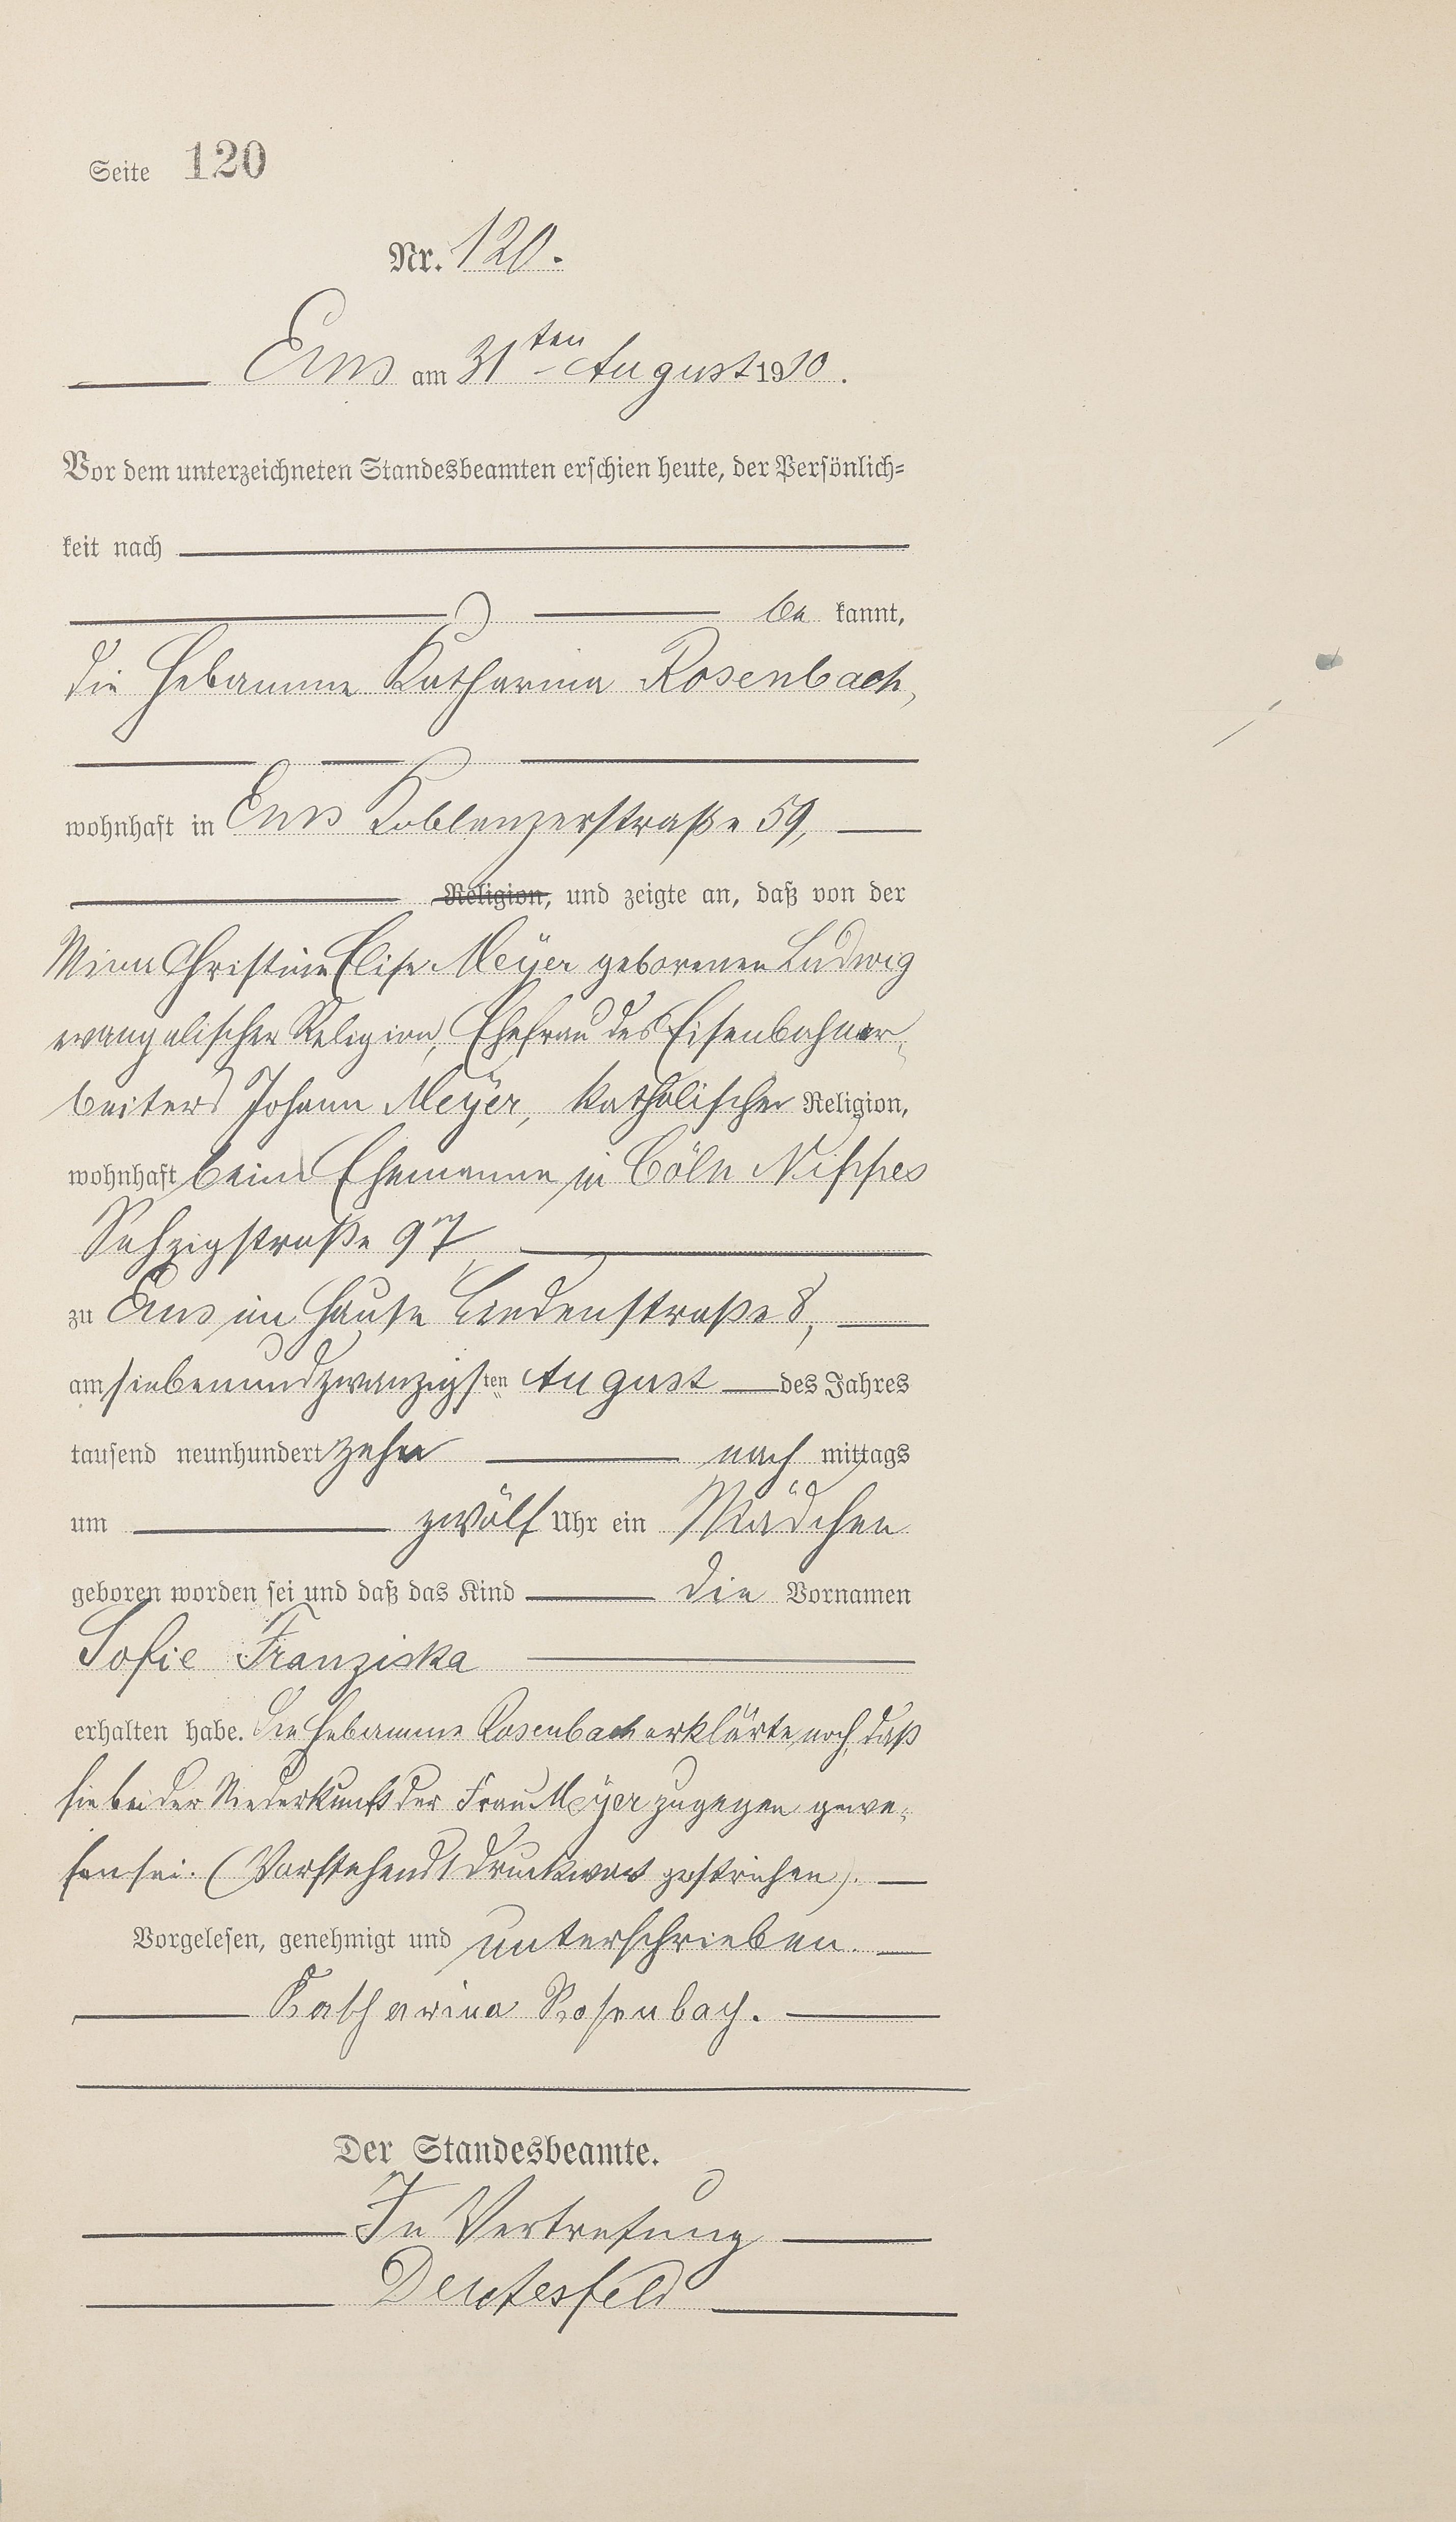 Seite 120
Nr. 120.
Ems am 31ten August 1910.
Vor dem unterzeichneten Standesbeamten erschien heute, der Persönlich-
keit nach
be kannt,
die Hebamme Katharina Rosenbach,
wohnhaft in Ems Koblenzerstraße 59,
Religion, und zeigte an, daß von der
Christine Elise Meyer geborenen Ludwig
evangelischer Religion, Ehefrau des Eisenbahnar-
beiters Johann Meyer, katholischer Religion,
wohnhaft beim Ehemanne in Cöln Nippes
97,
zu Ems im Hause Lindenstraße 8,
am siebenundzwanzigsten August des Jahres
tausend neunhundert zehn nach mittags
um zwölf Uhr ein Mädchen
geboren worden sei und daß das Kind die Vornamen
Sofie Franziska
erhalten habe. Die Hebamme Rosenbach erklärte noch, daß
sie bei der Niederkunft der Frau Meyer zugegen gewe-
sen sei. (Vorstehend 1 Druckwort gestrichen).
Vorgelesen, genehmigt und unterschrieben.
Katharina Rosenbach.
Der Standesbeamte.
In Vertretung